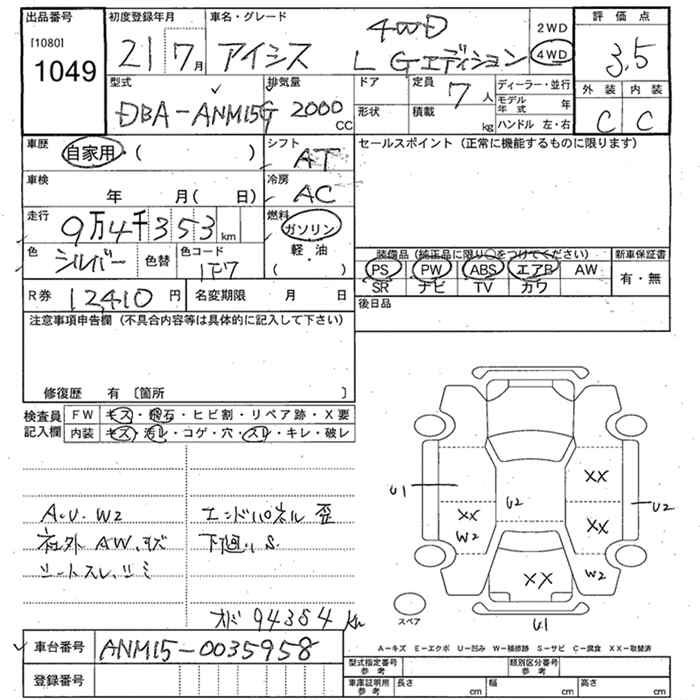 出品番号
[1080]
1049
初度登録年月
21 7月
車名・グレード
アイシス 4WD L Gエディション
2WD
4WD
評価点
3.5
外装 内装
C C
型式
DBA-ANM15G
排気量
2000 cc
ドア
形状
定員
7人
積載
kg
ディーラー・並行
モデル年式 年
ハンドル 左・右
車歴
自家用・( )
シフト
AT
セールスポイント (正常に機能するものに限ります)
車検
年 月( 日)
冷房
AC
走行
9万4千353km
燃料
ガソリン
軽・油
( )
色
シルバー
色替
色コード
1F7
装備品 (純正品に限り○をつけてください)
新車保証書
PS PW ABS エアB AW
SR ナビ TV カワ
有・無
R券
12410円
名変期限 月 日
後日品
注意事項申告欄 (不具合内容等は具体的に記入して下さい)
修復歴 有 〔箇所 〕
検査員記入欄
FW キズ・飛石・ヒビ割・リペア跡・X要
内装 キズ・汚レ・コゲ・穴・スレ・キレ・破レ
A・U・W2
社外AW、キズ
シートスレ、シミ
エンドパネル 歪
下廻り S.
オド 94384 km
U1
U2
U2
XX
XX
XX
W2
W2
XX
U1
スペア
車台番号
ANM15-0035958
登録番号
A-キズ E-エクボ U-凹み W-補修跡 S-サビ C-腐食 XX-取替済
型式指定番号 参考
類別区分番号 参考
車庫証明用 参考
長さ cm
幅 cm
高さ cm